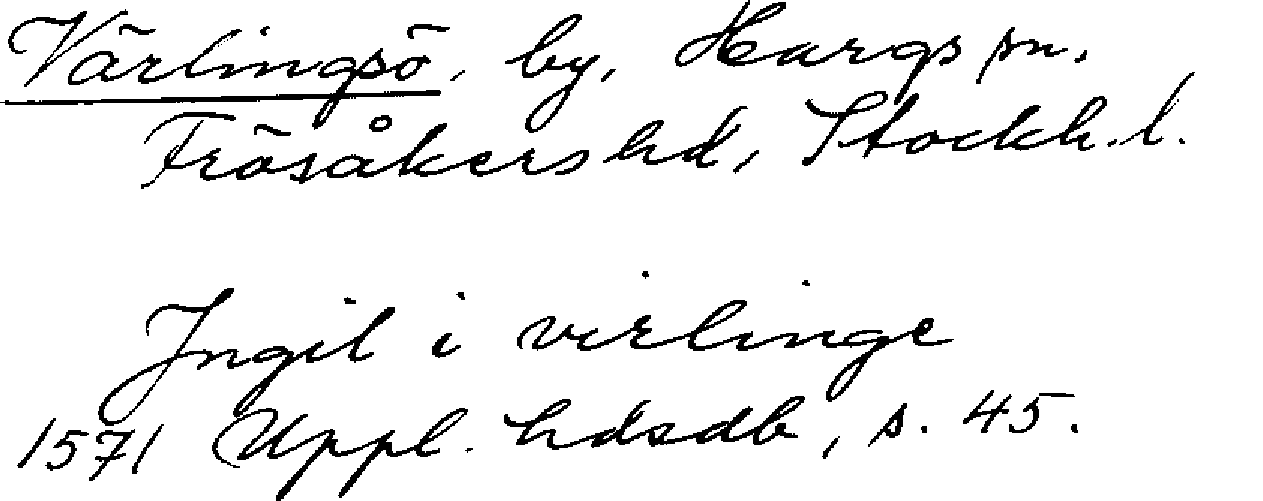 Värlingsö, by, Hargs sn.
Frösåkers hd, Stockh. l.
Ingil i virlinge
1571 Uppl. hdsdb, s. 45.